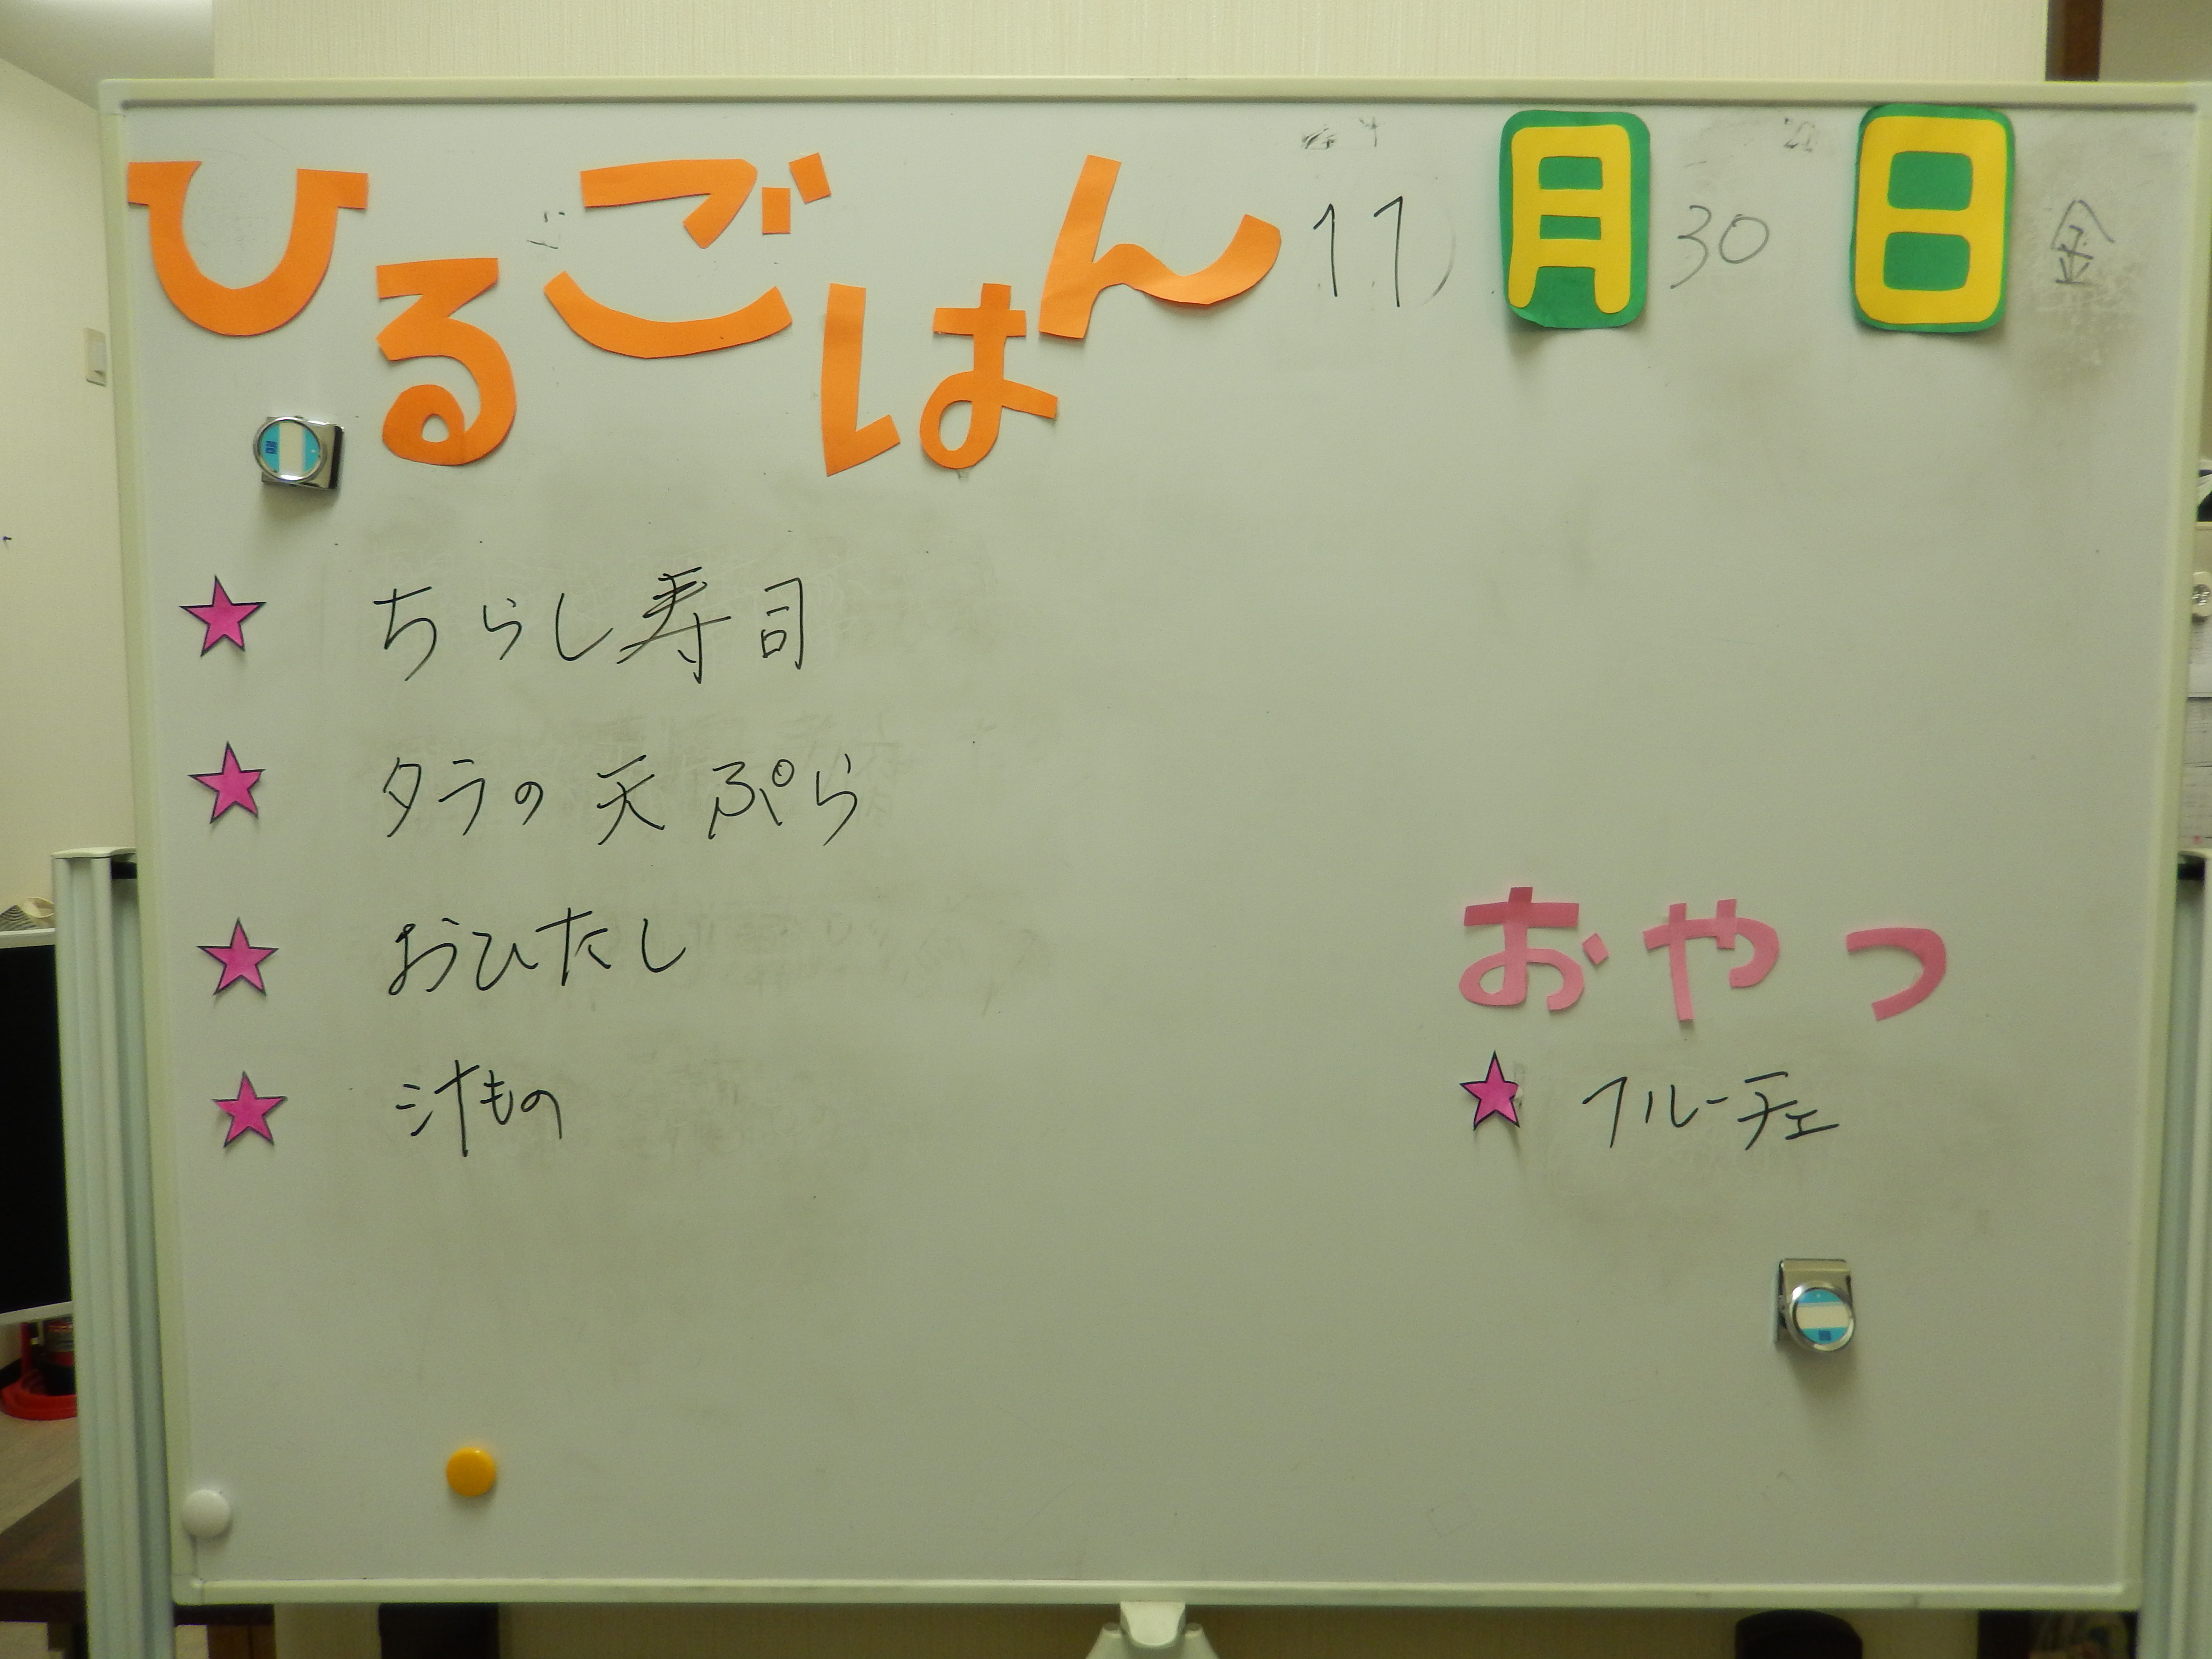 ひるごはん 11月30日 金
ちらし寿司
タラの天ぷら
おひたし
汁もの
おやつ
フルーチェ